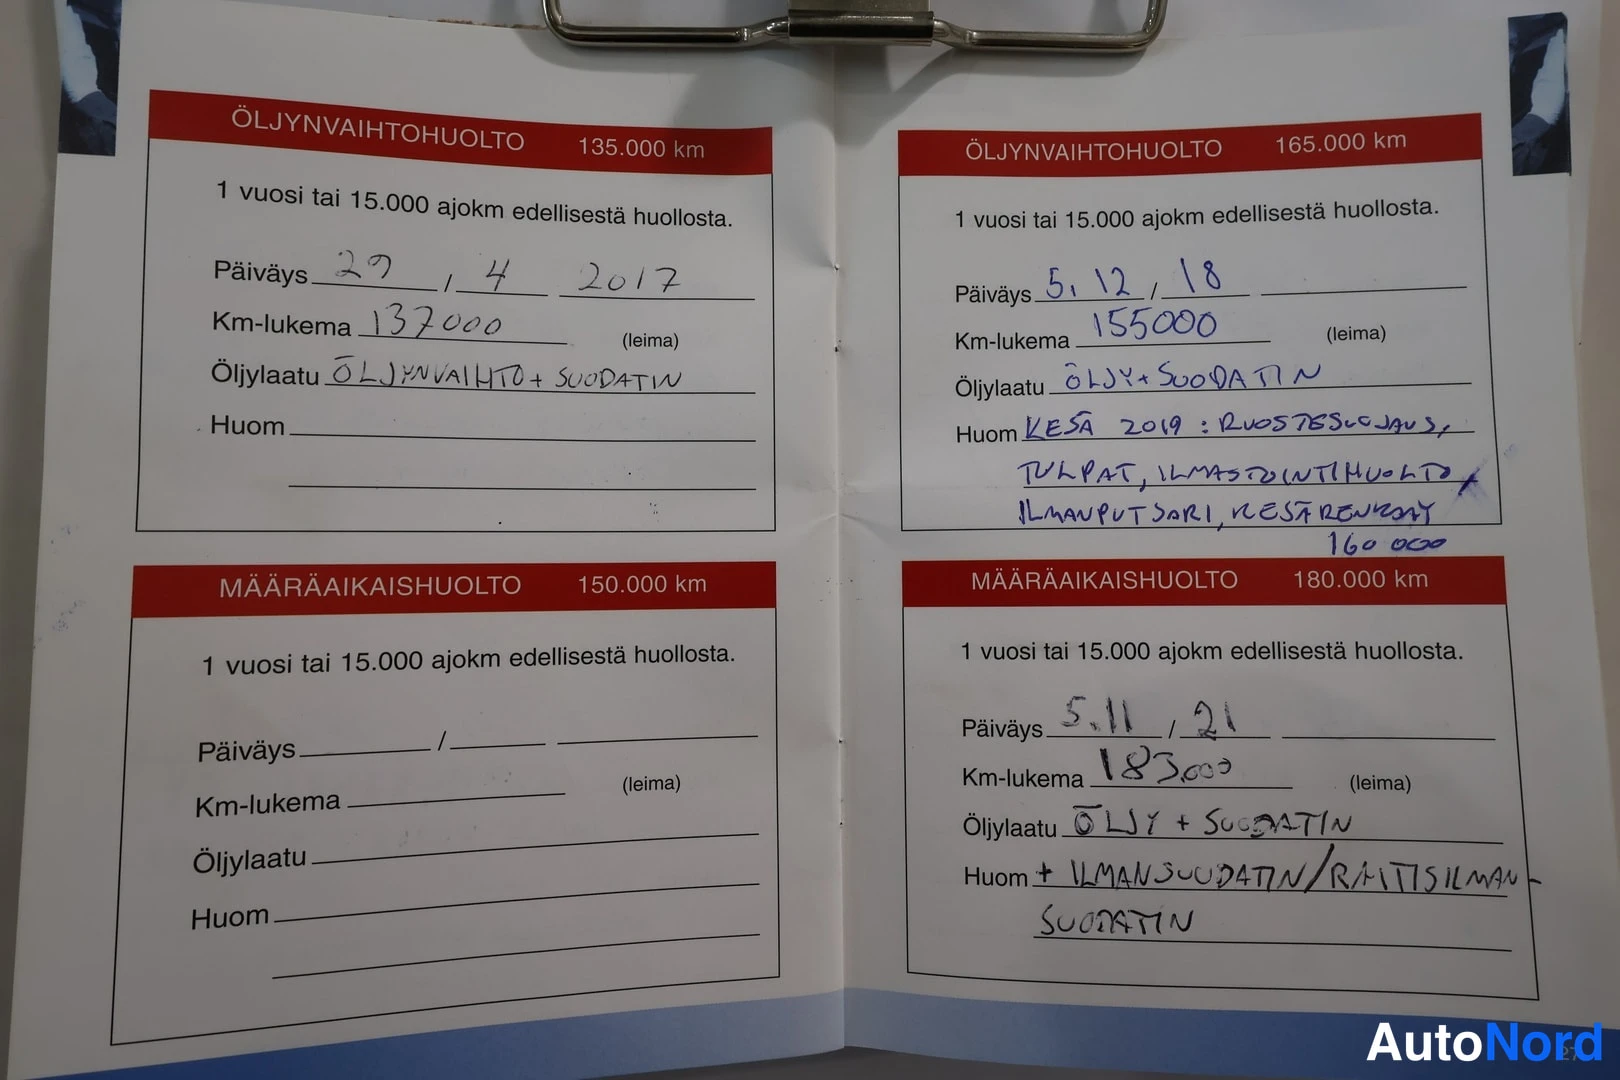 ÖLJYNVAIHTOHUOLTO 135.000 km
1 vuosi tai 15.000 ajokm edellisestä huollosta.
Päiväys 29 / 4 2017
Km-lukema 137000 (leima)
Öljylaatu ÖLJYNVAIHTO + SUODATIN
Huom
MÄÄRÄAIKAISHUOLTO 150.000 km
1 vuosi tai 15.000 ajokm edellisestä huollosta.
Päiväys /
Km-lukema (leima)
Öljylaatu
Huom
ÖLJYNVAIHTOHUOLTO 165.000 km
1 vuosi tai 15.000 ajokm edellisestä huollosta.
Päiväys 5.12 / 18
Km-lukema 155000 (leima)
Öljylaatu ÖLJY + SUODATIN
Huom KESÄ 2019 : RUOSTESUOJAUS,
TULPAT, ILMASTOINTIHUOLTO,
ILMANPUTSARI, KESÄRENKAAT
160 000
MÄÄRÄAIKAISHUOLTO 180.000 km
1 vuosi tai 15.000 ajokm edellisestä huollosta.
Päiväys 5.11 / 21
Km-lukema 183.000 (leima)
Öljylaatu ÖLJY + SUODATIN
Huom + ILMANSUODATIN/RAITISILMAN-
SUODATIN
AutoNord